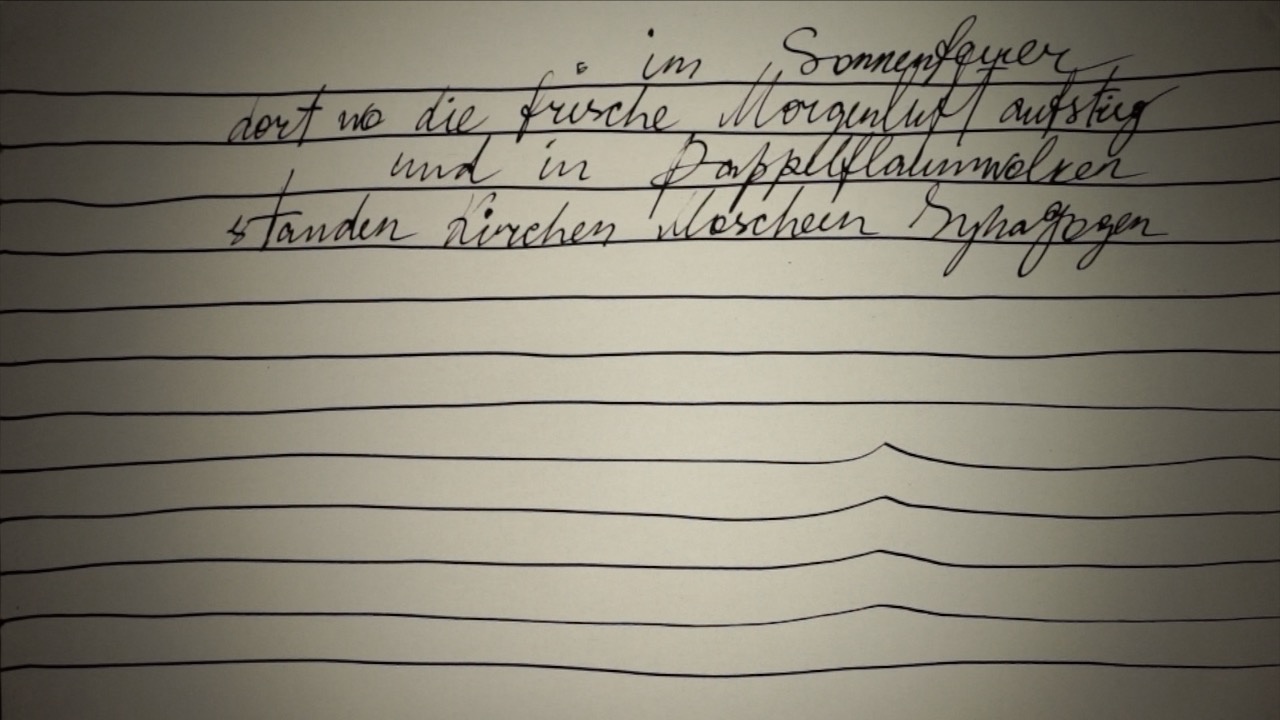 im Sonnenfeuer
dort wo die frische Morgenluft aufstieg
und in Pappelflaumwolken
standen Kirchen Moscheen Synagogen